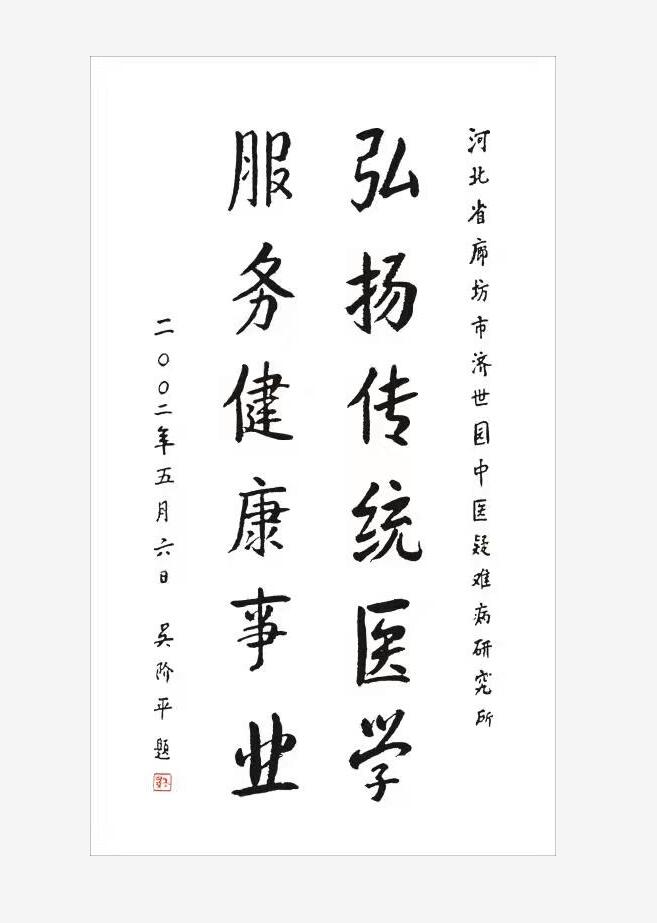 河北省廊坊市济世园中医疑难病研究所
弘扬传统医学
服务健康事业
二〇〇二年五月六日 吴阶平题